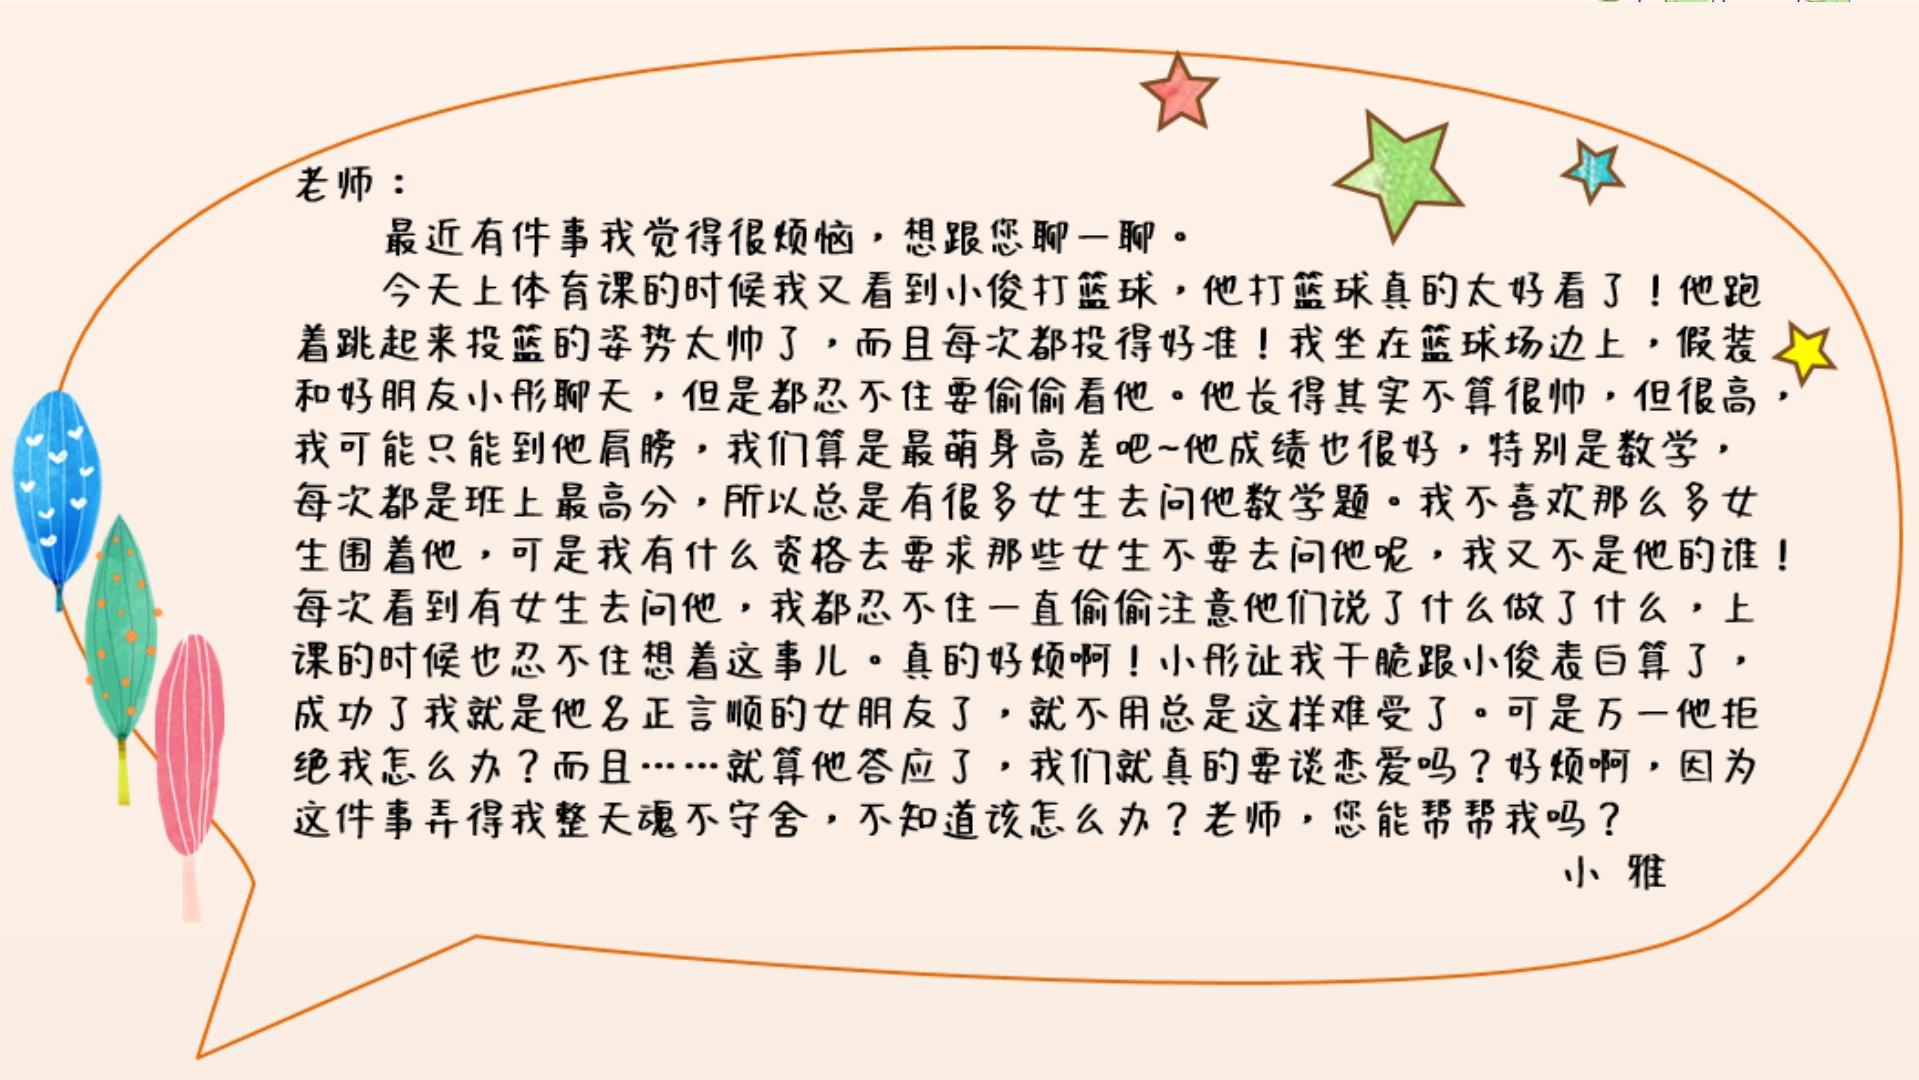 老师：
最近有件事我觉得很烦恼，想跟您聊一聊。
今天上体育课的时候我又看到小俊打篮球，他打篮球真的太好看了！他跑
着跳起来投篮的姿势太帅了，而且每次都投得好准！我坐在篮球场边上，假装
和好朋友小彤聊天，但是都忍不住要偷偷看他。他长得其实不算很帅，但很高，
我可能只能到他肩膀，我们算是最萌身高差吧~他成绩也很好，特别是数学，
每次都是班上最高分，所以总是有很多女生去问他数学题。我不喜欢那么多女
生围着他，可是我有什么资格去要求那些女生不要去问他呢，我又不是他的谁！
每次看到有女生去问他，我都忍不住一直偷偷注意他们说了什么做了什么，上
课的时候也忍不住想着这事儿。真的好烦啊！小彤让我干脆跟小俊表白算了，
成功了我就是他名正言顺的女朋友了，就不用总是这样难受了。可是万一他拒
绝我怎么办？而且……就算他答应了，我们就真的要谈恋爱吗？好烦啊，因为
这件事弄得我整天魂不守舍，不知道该怎么办？老师，您能帮帮我吗？
小 雅